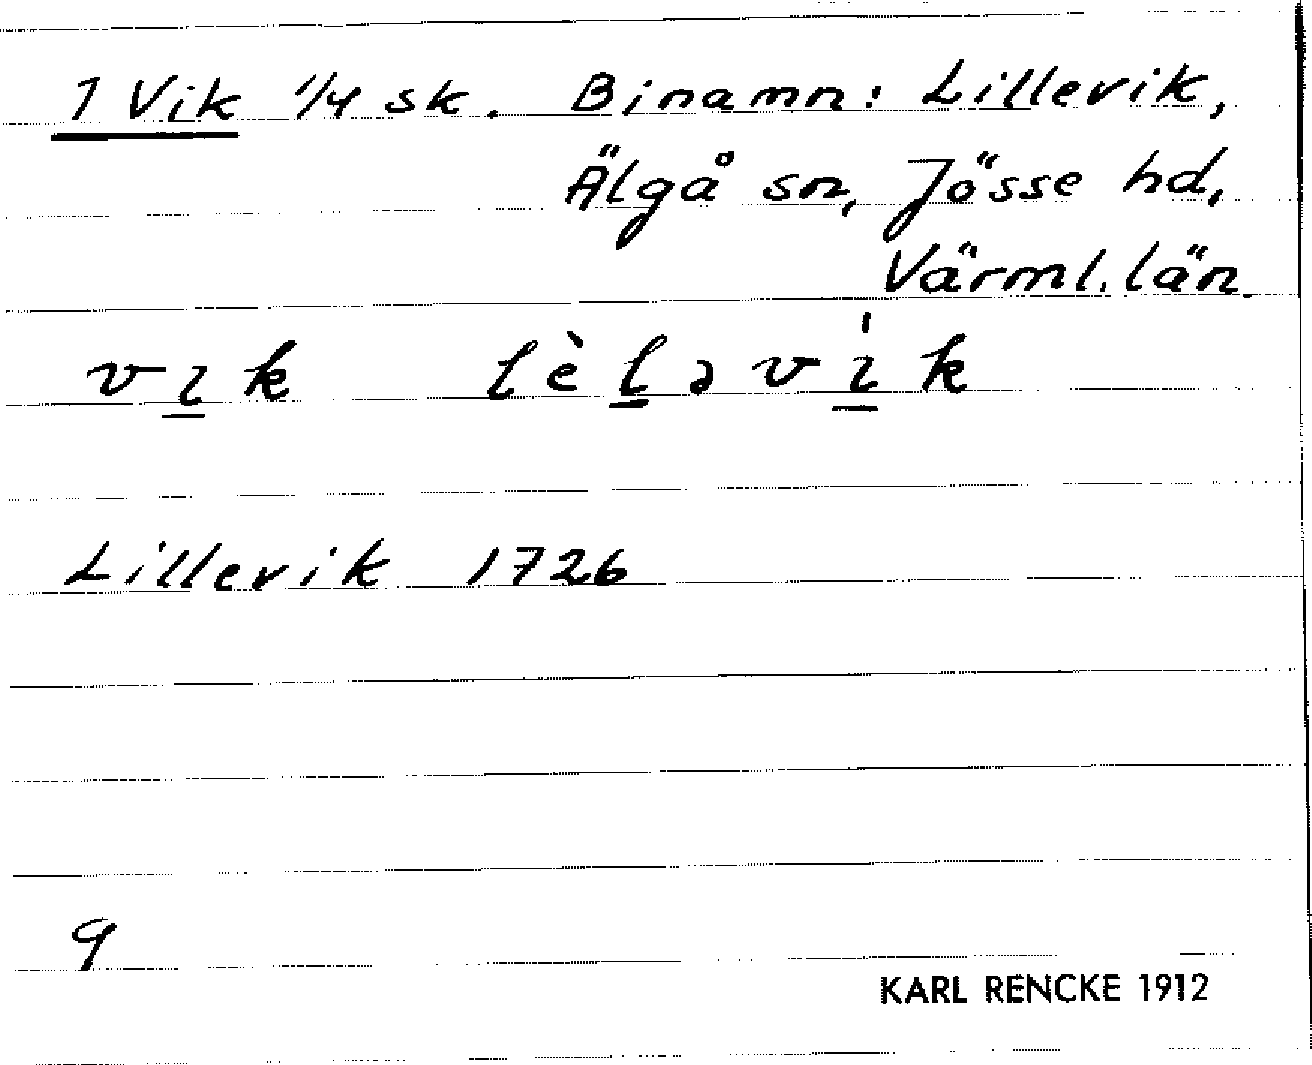 1 Vik 1/4 sk. Binamn: Lillevik,
Älgå sn, Jösse hd,
Värml. län.
vı̲k lèl̲əvı̲̍k
Lillevik 1726
9
KARL RENCKE 1912